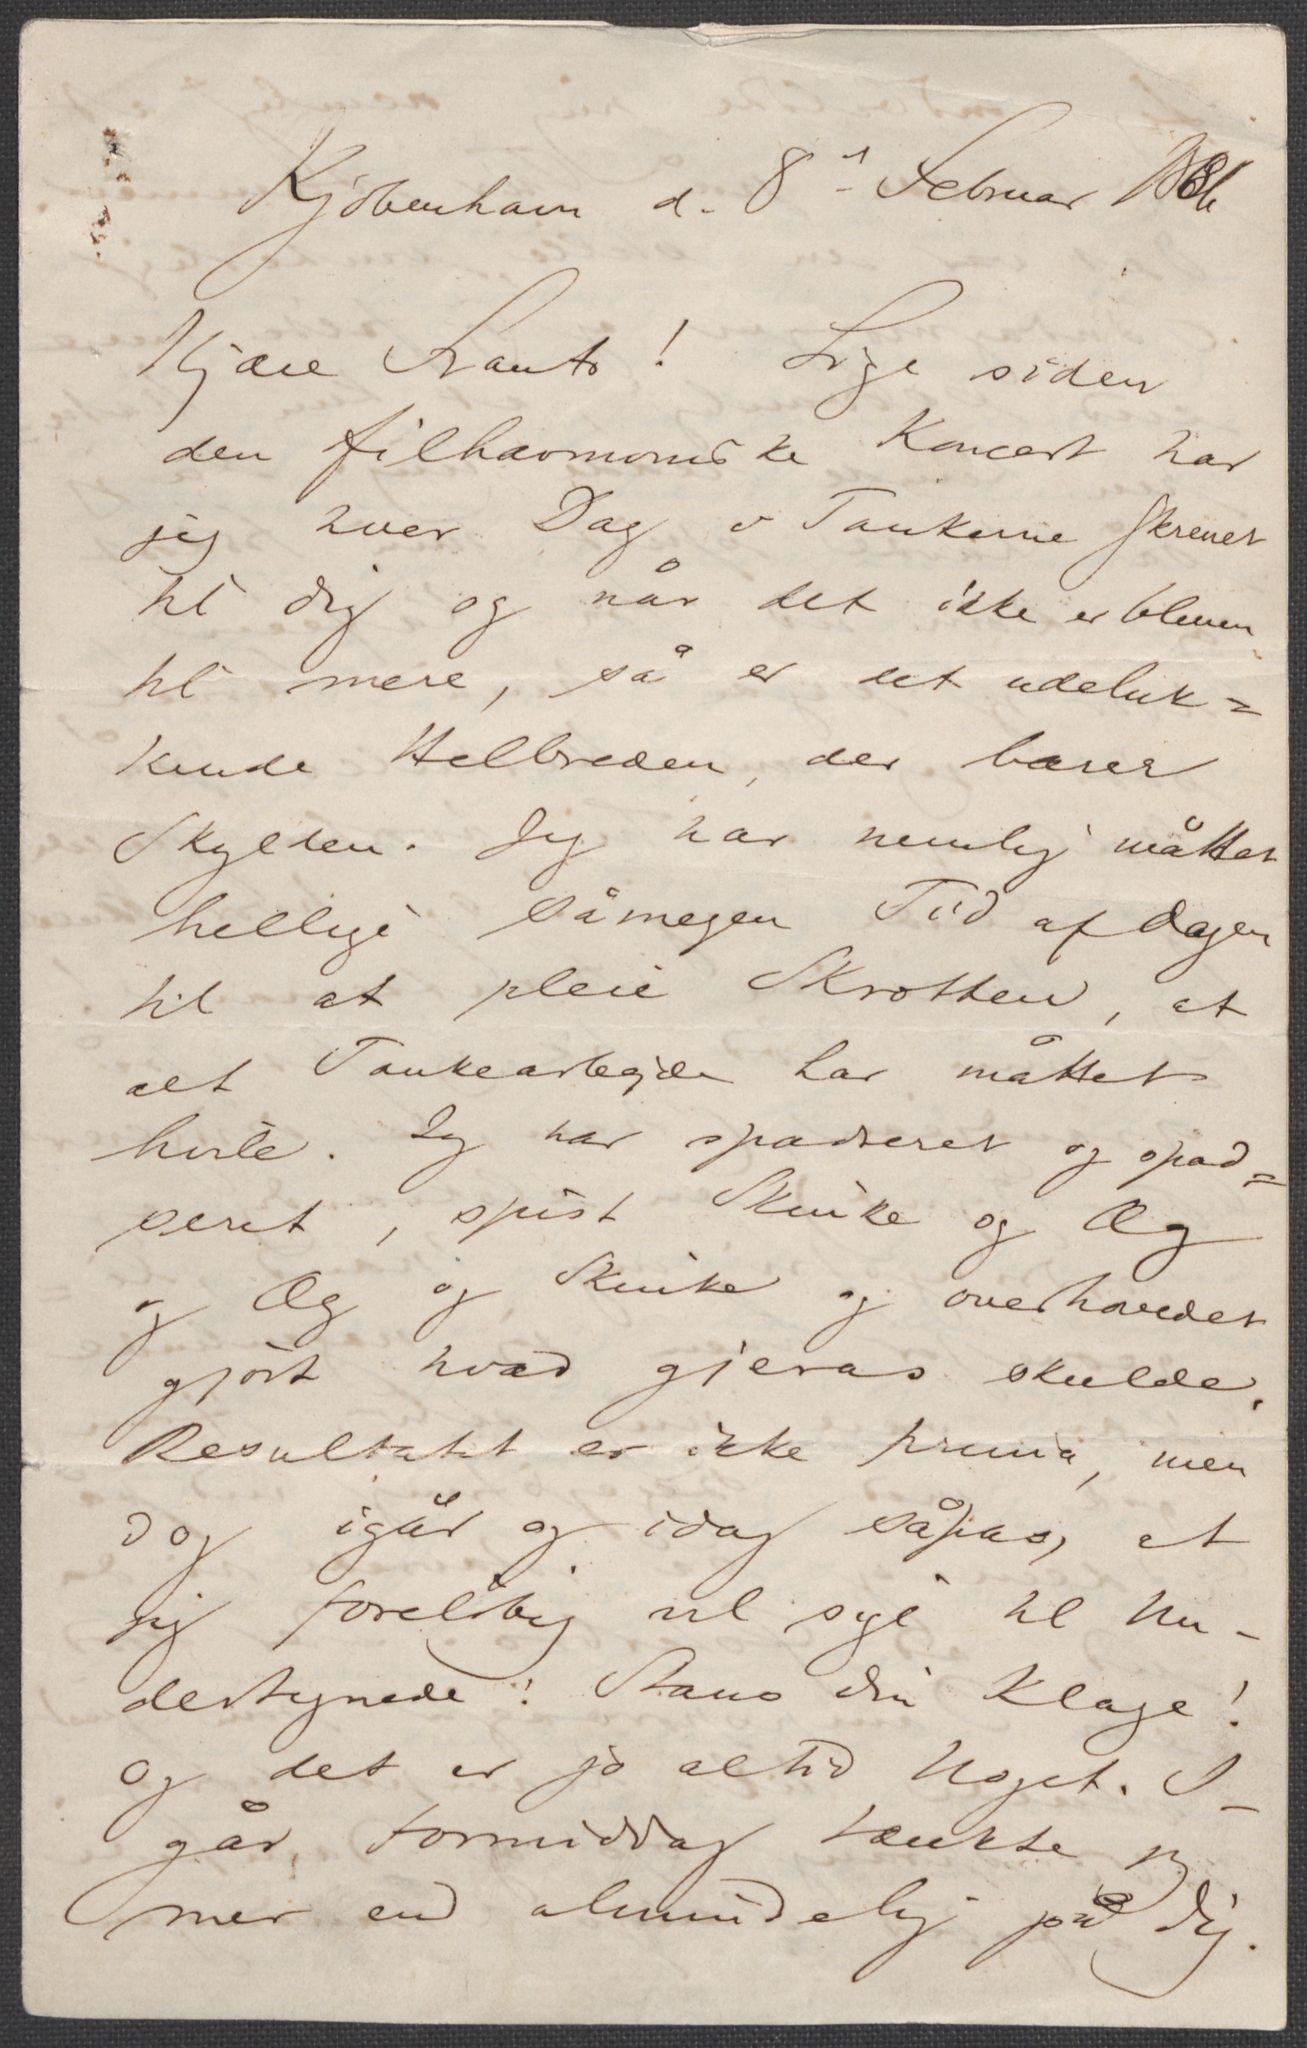 Kjøbenhavn d. 8d Februar 1886
Kjære Frants! Lige siden
den filharmoniske Koncert har
jeg hver Dag i Tankerne skrevet
til dig og når det ikke er bleven
til mere, så er det udeluk=
kende Helbreden, der bærer
Skylden. Jeg har nemlig måttet
hellige såmegen Tid af dagen
til at pleie Skrotten, at
alt Tankearbejde har måttet
hvile. Jeg har spadseret og spad=
seret, spist Skinke og Æg
og Æg og Skinke og overhovedet
gjört hvad gjøras skulde.
Resultatet er ikke prima, men
dog igår og idag såpas, at
jeg foreløbig vil sige til Un-
dertegnede: Stans din Klage!
og det er jo altid Noget. I-
går Formiddag tænkte jeg
mer end almindelig på dig.